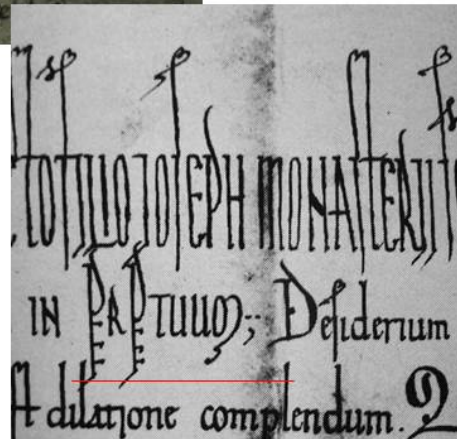 TO FILIO IOSEPH MONASTERII
IN PERPETUUM; Desiderium
st dilatione complendum. Q